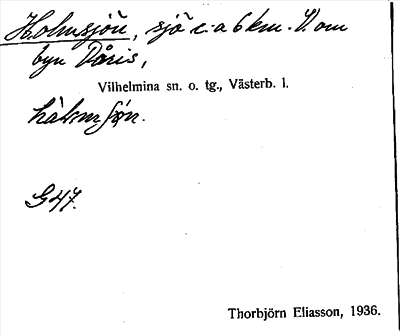 Holmsjön, sjö c:a 6 km. V. om
byn Dåris,
Vilhelmina sn. o. tg., Västerb. l.
G47.
Thorbjörn Eliasson, 1936.